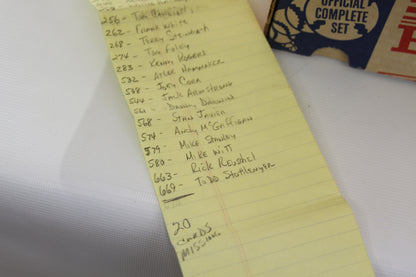 256- Tom
262- Frank White
268- Terry Steinbach
274- Tom Foley
283- Kenny Rogers
532- Atlee Hammaker
538- Joey Cora
544- Jack Armstrong
561- Danny Darwin
568- Stan Javier
574- Andy McGaffigan
579- Mike Stanley
580- Mike Witt
663- Rick Reuschel
669- Todd Stottlemyer
20
CARDS
MISSING
OFFICIAL
COMPLETE
SET